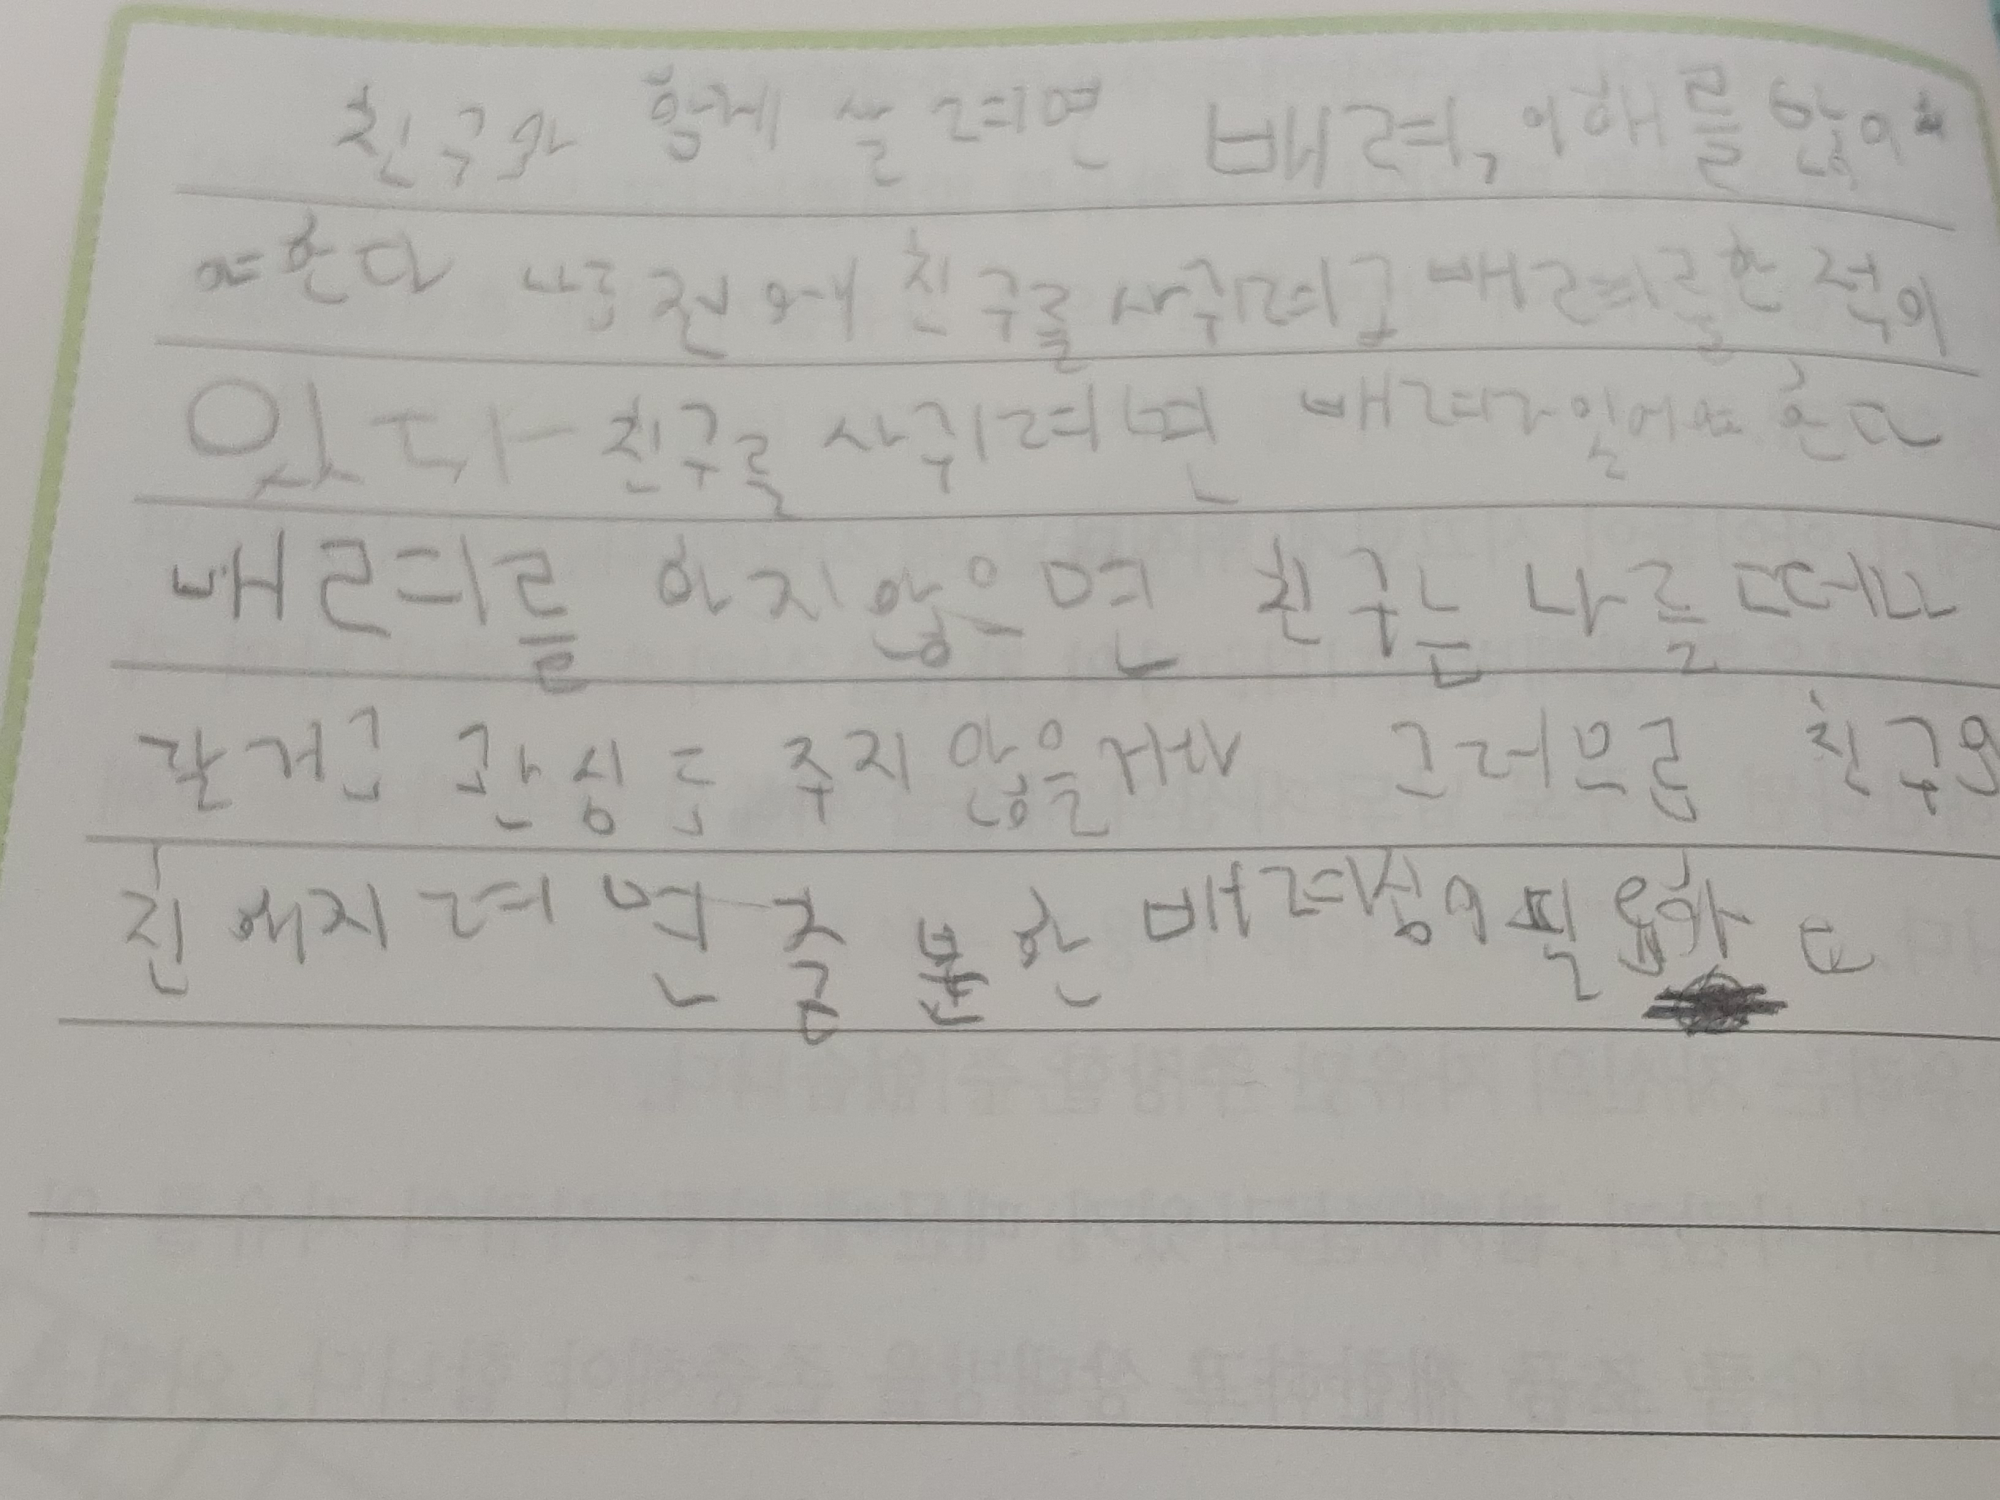 친구와 함게 놀려면 배려, 이해를 많이
야한다 나도 전에 친구를 사귀려고 배려를한 적이
있다 친구를 사귀려면 배려가있어야 한다
배려를 하지않으면 친구는 나를 떠나
갈거고 관심도 주지않을거야 그러므로 친구와
친해지려면 충분한 배려심이필요하다